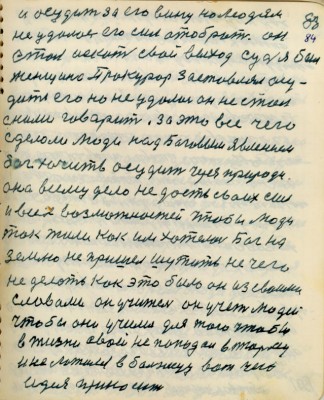 и осудит за его вину но людям
не удолос его сил отобрат. он
стал искат свой выход судя был
женщина прокурор заставлял осу-
дить его но не удалос он не стал
с ними говарит. за это все чего
сделоли люди над Баговым явленнем
Бог хочить осудит через природу.
она всему дело не дасть своих сил
и всех возможностей чтобы люди
так жили как им хотелос Баг на
землю не пришел шутить не чего
не делоть как это было он из своими
словами он учител он учет людей
чтобы они учили для того чтобы
в жизни своей не попадал в тюрму
и не ложился в Балницу вот чего
идея приносит
83
84